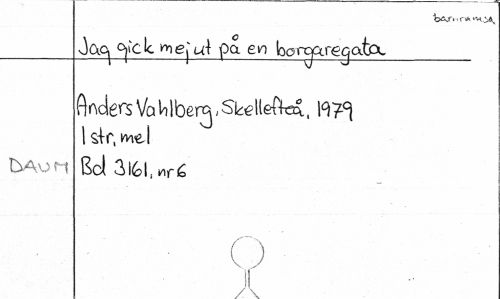 barnramsa
Jag gick mej ut på en borgaregata
Anders Vahlberg, Skellefteå, 1979
1 str, mel
DAUM Bd 3161, nr 6